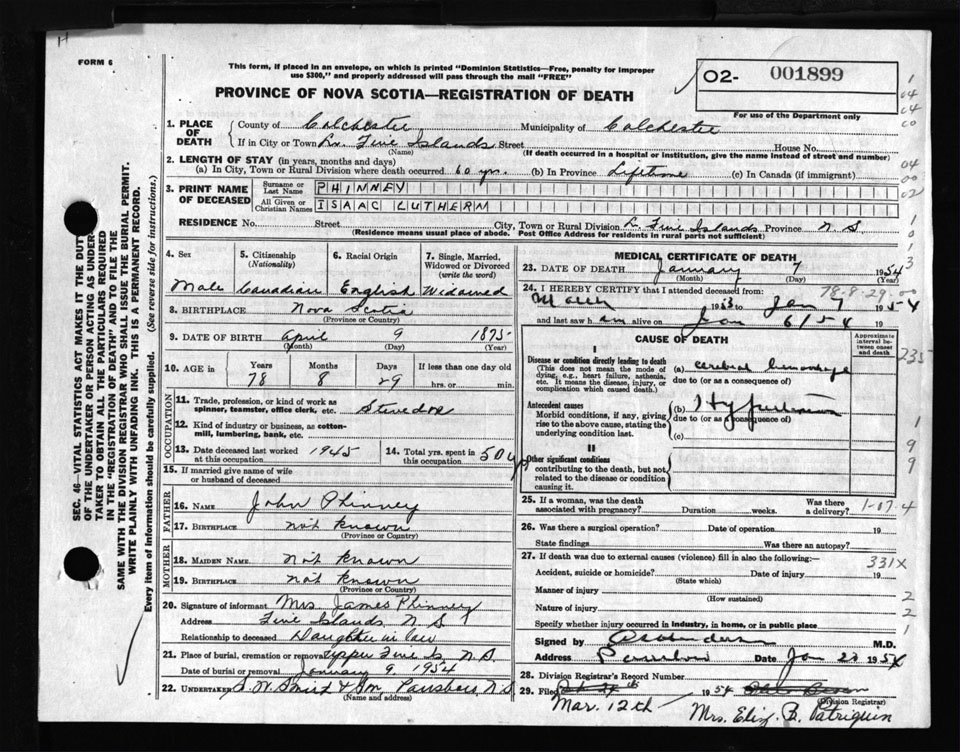 H
FORM 6
This form, if placed in an envelope, on which is printed "Dominion Statistics—Free, penalty for improper
use $300," and properly addressed will pass through the mail "FREE"
PROVINCE OF NOVA SCOTIA—REGISTRATION OF DEATH
O2- 001899
For use of the Department only
1. PLACE OF DEATH
County of Colchester Municipality of Colchester
If in City or Town Lr. Five Islands Street House No.
(Name) (If death occurred in a hospital or institution, give the name instead of street and number)
2. LENGTH OF STAY (in years, months and days)
(a) In City, Town or Rural Division where death occurred 60 yrs. (b) In Province Lifetime (c) In Canada (if immigrant)
3. PRINT NAME OF DECEASED
Surname or Last Name PHINNEY
All Given or Christian Names ISAAC LUTHERM
RESIDENCE No. Street City, Town or Rural Division L. Five Islands Province N S
(Residence means usual place of abode. Post Office Address for residents in rural parts not sufficient)
4. Sex
Male
5. Citizenship
(Nationality)
Canadian
6. Racial Origin
English
7. Single, Married, Widowed or Divorced
(write the word)
Widowed
8. BIRTHPLACE Nova Scotia
(Province or Country)
9. DATE OF BIRTH April 9 1875
(Month) (Day) (Year)
10. AGE Years Months Days If less than one day old
78 8 29 hrs. or min.
OCCUPATION
11. Trade, profession, or kind of work as
spinner, teamster, office clerk, etc. Stevedore
12. Kind of industry or business, as cotton-
mill, lumbering, bank, etc.
13. Date deceased last worked
at this occupation 1945
14. Total yrs. spent in
this occupation 50 yrs
15. If married give name of wife
or husband of deceased
FATHER
16. NAME John Phinney
17. BIRTHPLACE not known
(Province or Country)
MOTHER
18. MAIDEN NAME not known
19. BIRTHPLACE not known
(Province or Country)
20. Signature of informant Mrs. James Phinney
Address Five Islands N. S
Relationship to deceased Daughter in law
21. Place of burial, cremation or removal Upper Five Is. N.S.
Date of burial or removal January 9 1954
22. UNDERTAKER & Son, Parrsboro, N.S
(Name and address)
MEDICAL CERTIFICATE OF DEATH
23. DATE OF DEATH January 7 1954
(Month) (Day) (Year)
24. I HEREBY CERTIFY that I attended deceased from: 78-8-29-00
March 1953 to Jan 7 1954
and last saw him alive on Jan 6/54 19
CAUSE OF DEATH
Approximate interval between onset and death
I
Disease or condition directly leading to death
(This does not mean the mode of dying, e.g., heart failure, asthenia, etc. It means the disease, injury, or complication which caused death.)
(a) cerebral hemorrhage
due to (or as a consequence of)
Antecedent causes
Morbid conditions, if any, giving rise to the above cause, stating the underlying condition last.
(b) Hypertension
due to (or as a consequence of)
(c)
II
Other significant conditions
contributing to the death, but not related to the disease or condition causing it.
25. If a woman, was the death
associated with pregnancy? Duration weeks. Was there a delivery? 1-07-4
26. Was there a surgical operation? Date of operation 19
State findings Was there an autopsy?
27. If death was due to external causes (violence) fill in also the following:
331X
Accident, suicide or homicide? Date of injury 19
(State which)
Manner of injury
(How sustained)
Nature of injury
Specify whether injury occurred in industry, in home, or in public place
Signed by M.D.
Address Parrsboro Date Jan 23 1954
28. Division Registrar's Record Number
29. Filed 1954
(Division Registrar)
Mar. 12th Mrs. Eliz. B. Patriquin
SEC. 46—VITAL STATISTICS ACT MAKES IT THE DUTY
OF THE UNDERTAKER OR PERSON ACTING AS UNDER-
TAKER TO OBTAIN ALL THE PARTICULARS REQUIRED
IN THE "REGISTRATION OF DEATH" AND FILE THE
SAME WITH THE DIVISION REGISTRAR WHO SHALL ISSUE THE BURIAL PERMIT.
WRITE PLAINLY WITH UNFADING INK. THIS IS A PERMANENT RECORD.
Every item of information should be carefully supplied. (See reverse side for instructions.)
1
04
04
00
04
00
02
1
0
1
3
235
1
9
9
2
2
1